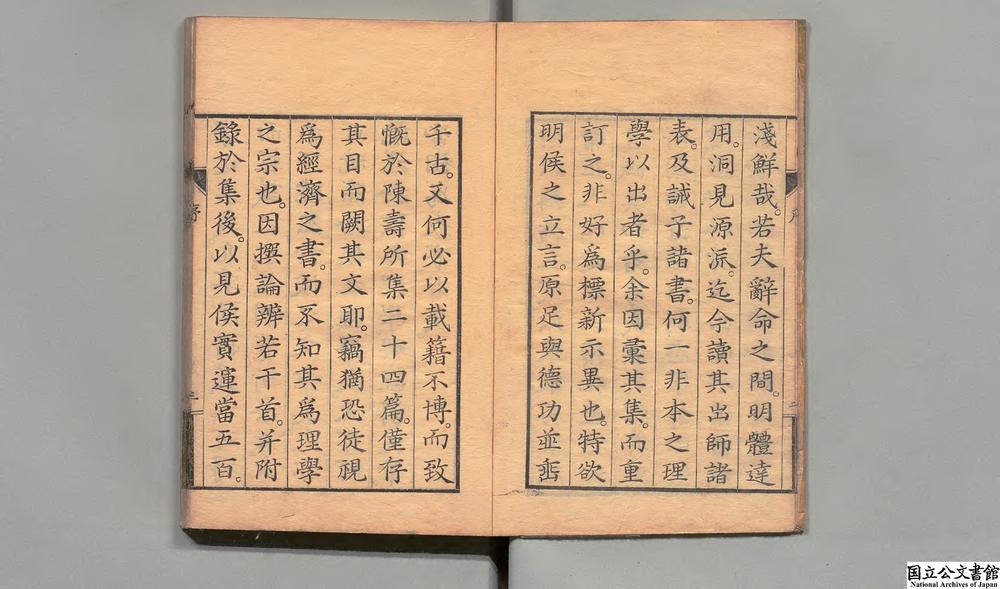 淺鮮哉。若夫辭命之間。明體達
用。洞見源流。迄今讀其出師諸
表。及誡子諸書。何一非本之理
學以出者乎。余因彙其集。而重
訂之。非好爲標新示異也。特欲
明侯之立言。原足與德功並垂
千古。又何必以載籍不博。而致
慨於陳壽所集二十四篇。僅存
其目而闕其文耶。竊猶恐徒視
爲經濟之書。而不知其爲理學
之宗也。因撰論辨若干首。并附
錄於集後。以見侯實運當五百。
序
二
国立公文書館
National Archives of Japan